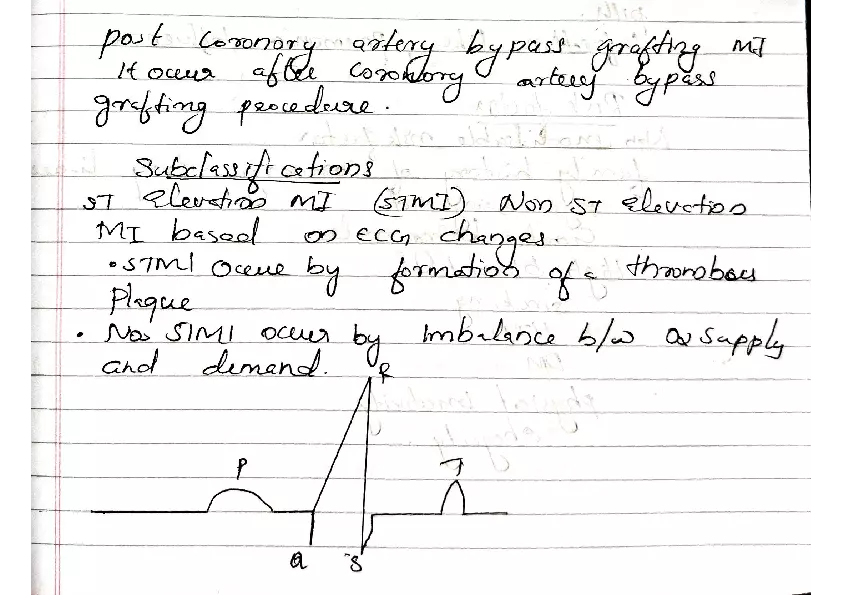 post coronory artery bypass grafting MI
It occur after coronory artery bypass
grafting procedure.
Subclassifications
ST Elevation MI (STMI) Non ST elevation
MI based on ECG changes.
• STMI occur by formation of a thrombous
Plaque
• Non STMI occur by Imbalance b/w O2 supply
and demand.
R
P
T
Q
S